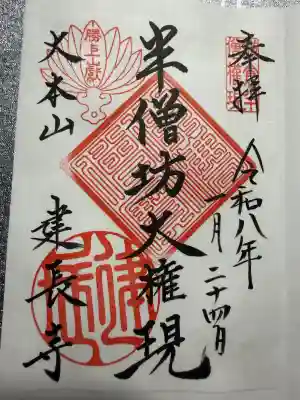 奉拝
令和八年
一月二十四日
半僧坊大権現
勝上山
大本山
建長寺